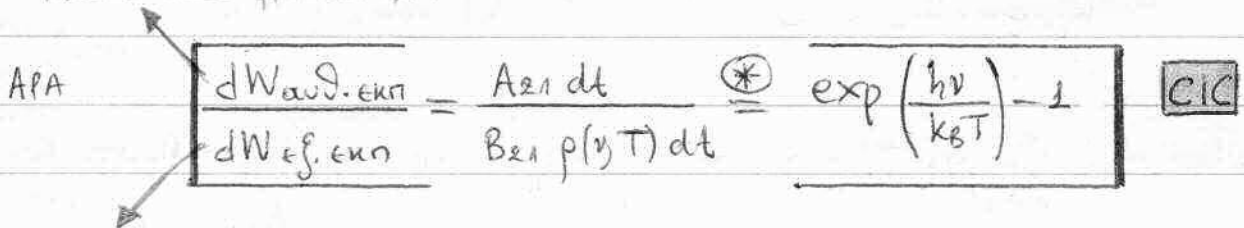 ΑΡΑ dWαυθ.εκπ / dWεξ.εκπ = A21 dt / B21 ρ(ν,T) dt (*)= exp(hν / kBT) - 1 CIC